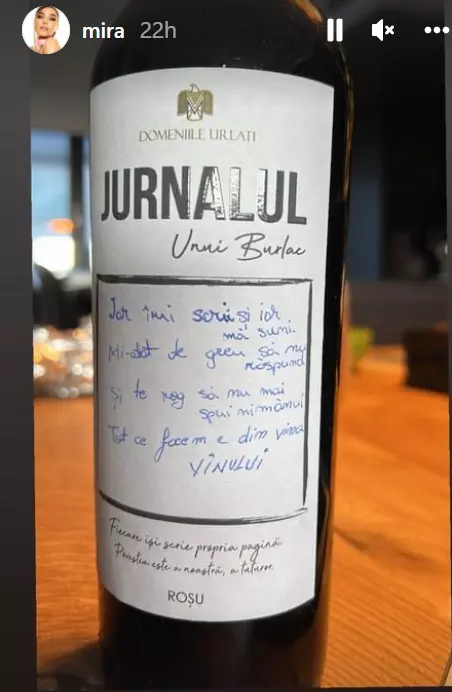 mira 22h
DOMENIILE URLAȚI
JURNALUL
Unui Burlac
Iar îmi scrii și iar
mă suni.
Mi-dat de greu să nu
răspund
Și te rog să nu mai
spui nimănui
Tot ce facem e din vina
VINULUI
Fiecare își scrie propria pagină.
Povestea este a noastră, a tuturor.
ROȘU